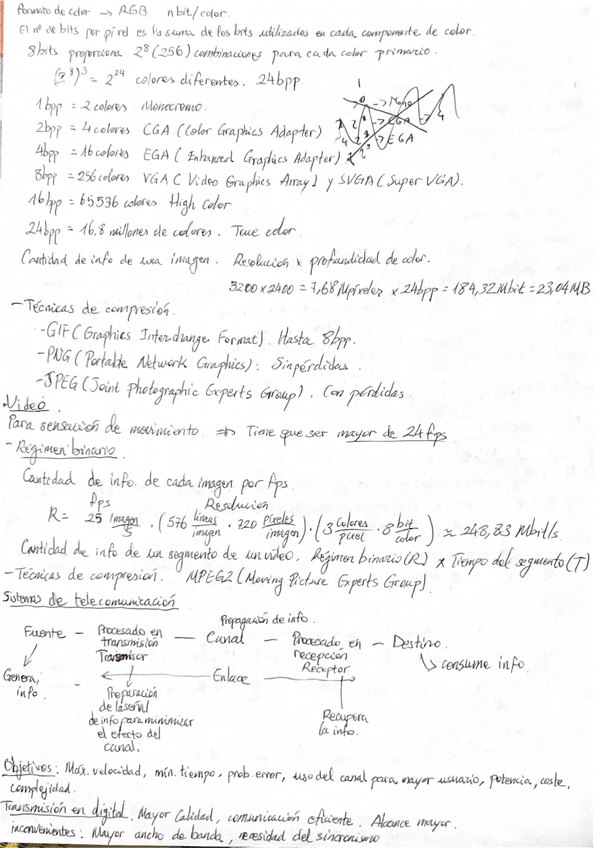 Formato de color → RGB n bit/color.
El nº de bits por píxel es la suma de los bits utilizados en cada componente de color.
8bits proporciona 2⁸ (256) combinaciones para cada color primario.
(2⁸)³ = 2²⁴ colores diferentes. 24bpp
1bpp = 2 colores. Monocromo.
2bpp = 4 colores CGA (Color Graphics Adapter)
4bpp = 16 colores EGA (Enhanced Graphics Adapter)
8bpp = 256 colores VGA (Video Graphics Array) y SVGA (Super VGA).
16bpp = 65536 colores High color
24bpp = 16.8 millones de colores. True color.
Cantidad de info de una imagen. Resolución x profundidad de color.
3200 x 2400 = 7,68 Mpíxeles x 24bpp = 184,32 Mbit = 23,04 MB
- Técnicas de compresión.
- GIF (Graphics Interchange Format). Hasta 8bpp.
- PNG (Portable Network Graphics): Sin pérdidas.
- JPEG (Joint Photographic Experts Group). Con pérdidas.
- Video.
Para sensación de movimiento. ⇒ Tiene que ser mayor de 24 fps
- Régimen binario.
Cantidad de info. de cada imagen por fps.
fps Resolución
R = 25 imagen/s · (576 líneas/imagen · 720 píxeles/imagen) · (3 colores/pixel · 8 bit/color) ≈ 248,83 Mbit/s.
Cantidad de info de un segmento de un video. Régimen binario (R) x Tiempo del segmento (T)
- Técnicas de compresión. MPEG2 (Moving Picture Experts Group).
Sistemas de telecomunicación
Propagación de info.
Fuente - Procesado en transmisión Transmisor - Canal - Procesado en recepción Receptor - Destino.
↳ consume info.
Genera info. - Enlace
Preparación de la señal de info para minimizar el efecto del canal.
Recupera la info.
Objetivos: Máx. velocidad, mín. tiempo, prob. error, uso del canal para mayor usuario, potencia, coste,
complejidad.
Transmisión en digital. Mayor calidad, comunicación eficiente. Alcance mayor.
inconvenientes: Mayor ancho de banda, necesidad del sincronismo